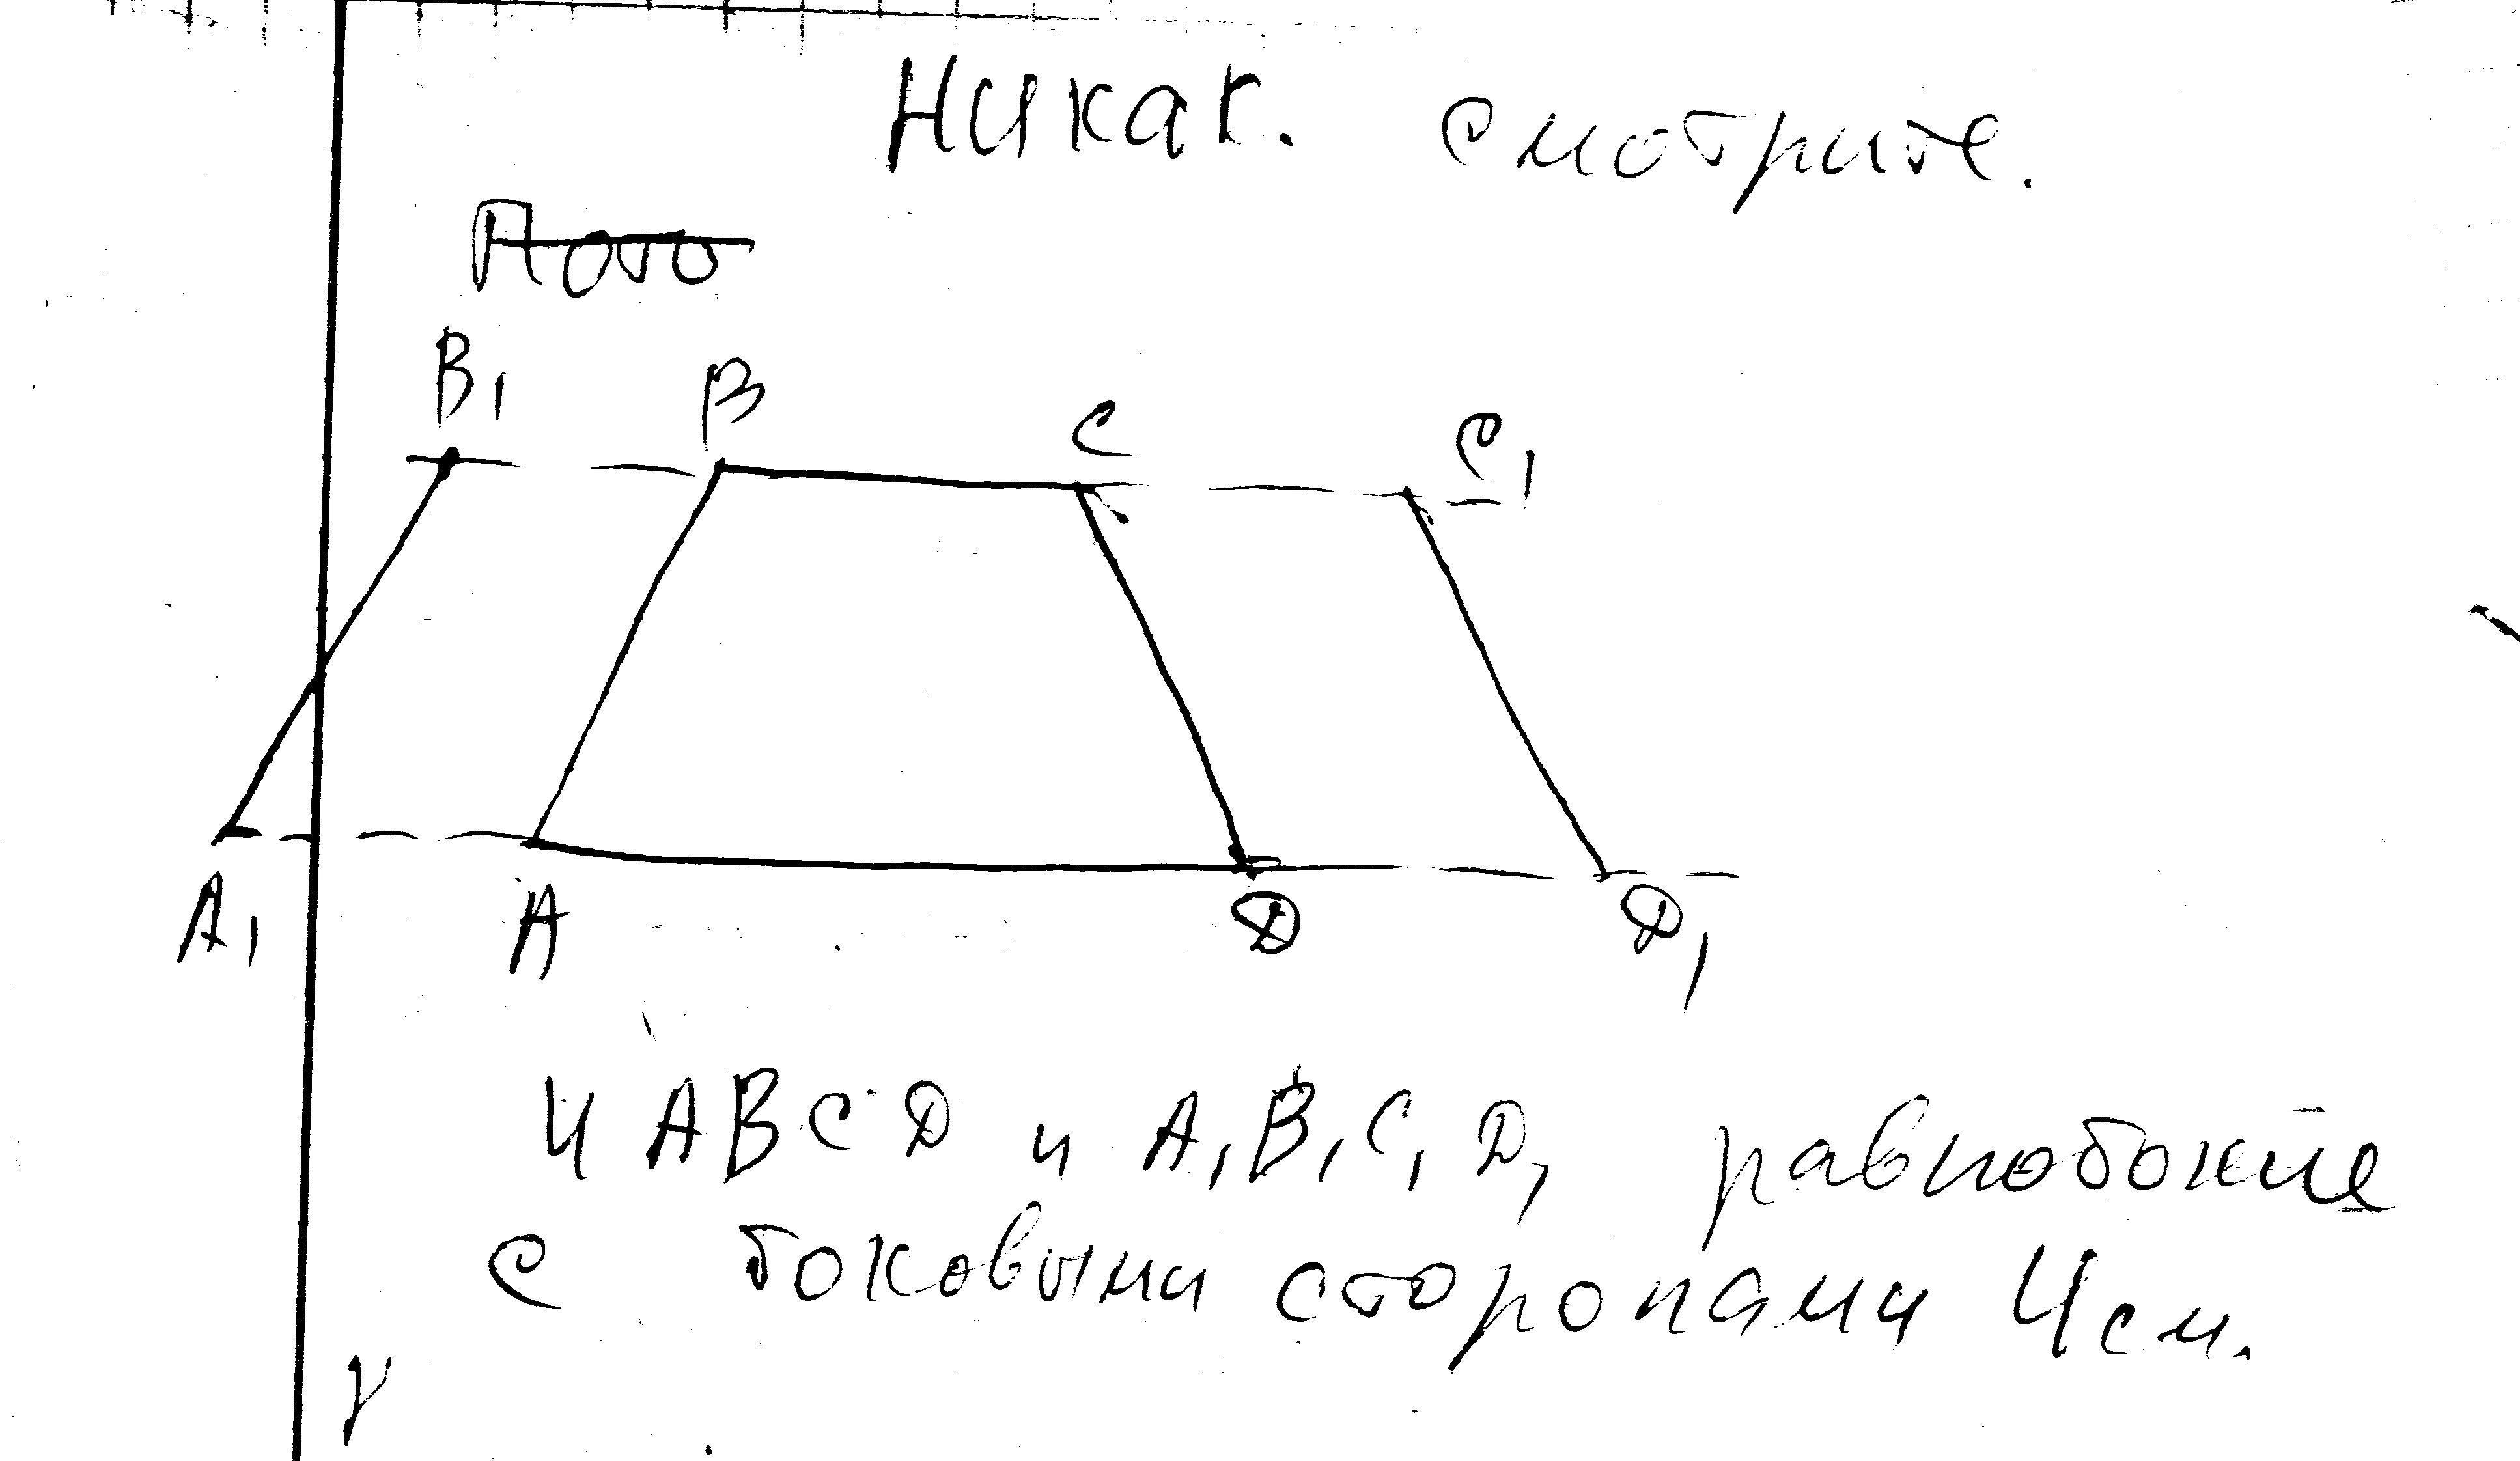 Никак. Смотрите.
B₁ B C C₁
A₁ A D D₁
И ABCD и A₁B₁C₁D₁ равнобокие
с боковыми сторонами 4см.